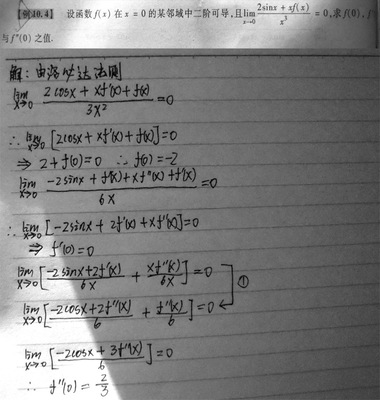 【例10.4】 设函数 f(x) 在 x = 0 的某邻域中二阶可导,且 lim_{x→0} (2sinx + xf(x))/x³ = 0,求 f(0), f'
与 f''(0) 之值.
解: 由洛必达法则
lim_{x→0} (2cosx + xf'(x) + f(x))/3x² = 0
∴ lim_{x→0} [2cosx + xf'(x) + f(x)] = 0
⇒ 2 + f(0) = 0 ∴ f(0) = -2
lim_{x→0} (-2sinx + f'(x) + xf''(x) + f'(x))/6x = 0
∴ lim_{x→0} [-2sinx + 2f'(x) + xf''(x)] = 0
⇒ f'(0) = 0
lim_{x→0} [(-2sinx + 2f'(x))/6x + xf''(x)/6x] = 0
①
lim_{x→0} [(-2cosx + 2f''(x))/6 + f''(x)/6] = 0
lim_{x→0} [(-2cosx + 3f''(x))/6] = 0
∴ f''(0) = 2/3